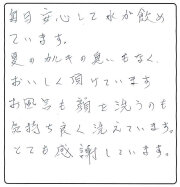 毎日安心して水が飲め
ています。
夏のカルキの臭いもなく、
おいしく頂けています
お風呂も顔を洗うのも
気持ち良く洗えています。
とても感謝しています。